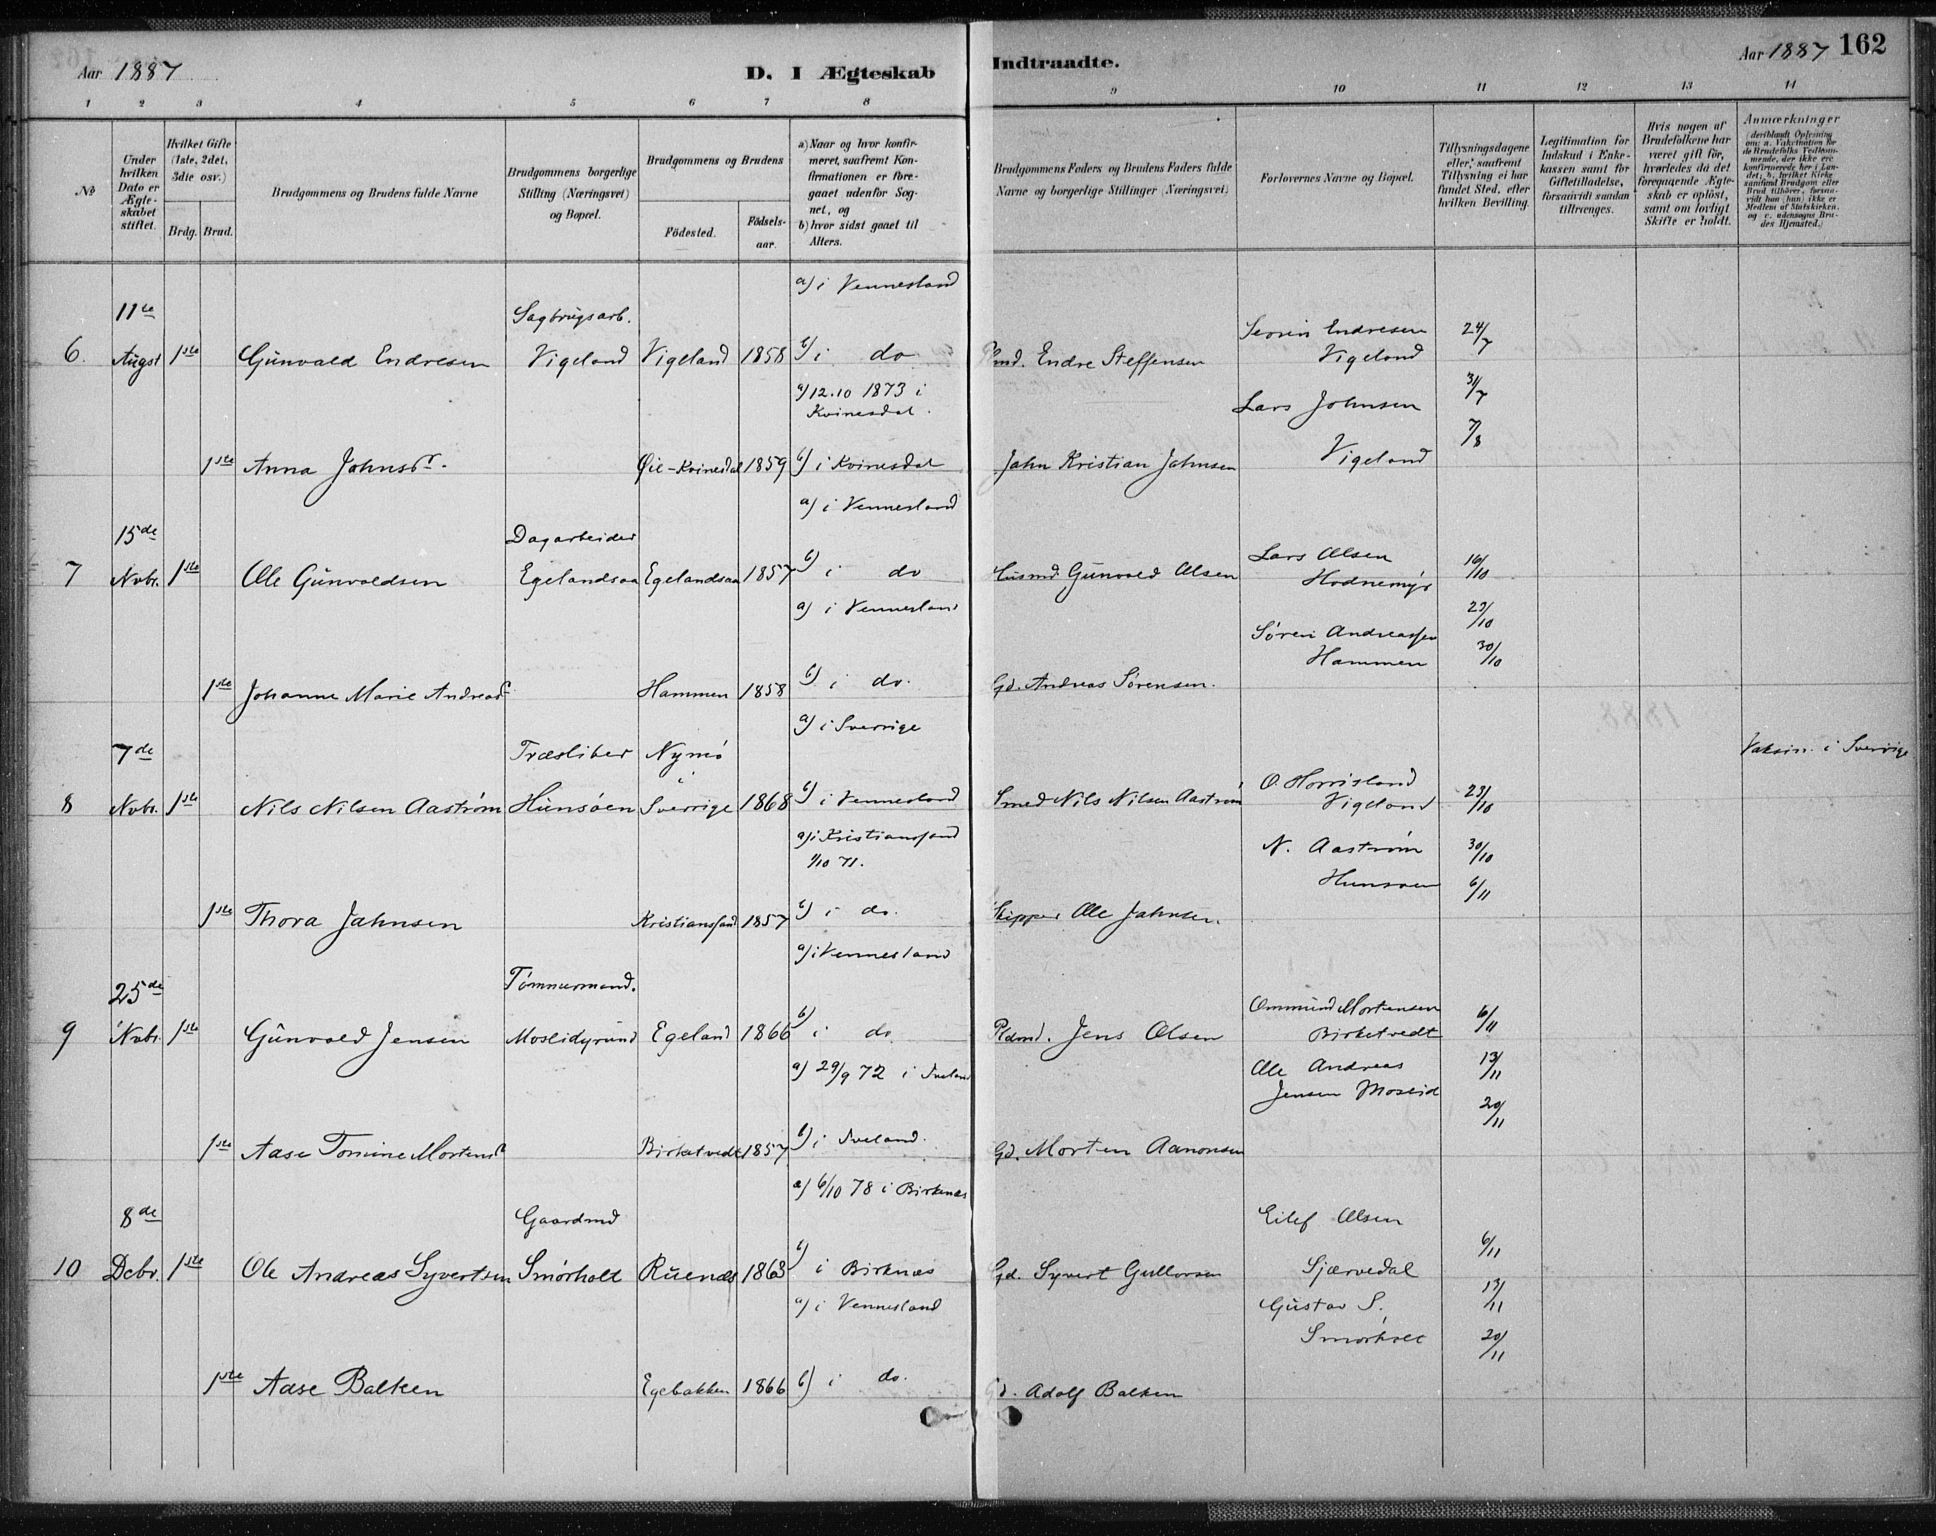 Aar 1887
D. I Ægteskab
Indtraadte.
Aar 1887 162
1 2 3 4 5 6 7 8 9 10 11 12 13 14
No
Under hvilken Dato er Ægteskabet stiftet.
Hvilket Gifte (1ste, 2det, 3die osv.)
Brdg. Brud.
Brudgommens og Brudens fulde Navne
Brudgommens borgerlige Stilling (Næringsvei) og Bopæl.
Brudgommens og Brudens
Fødested.
Fødselsaar.
a) Naar og hvor konfirmeret, saafremt Konfirmationen er foregaaet udenfor Sognet, og
b) hvor sidst gaaet til Alters.
Brudgommens Faders og Brudens Faders fulde Navne og borgerlige Stillinger (Næringsvei)
Forlovernes Navne og Bopæl.
Tillysningsdagene eller, saafremt Tillysning ei har fundet Sted, efter hvilken Bevilling.
Legitimation for Indskud i Enkekassen samt for Giftetilladelse, forsaavidt saadan tiltrænges.
Hvis nogen af Brudefolkene har været gift før, hvorledes da det foregaaende Ægteskab er opløst, samt om lovligt Skifte er holdt.
Anmærkninger
(deriblandt Oplysning om: a. Vakcination for de Brudefolks Vedkommende, der ikke ere konfirmerede her i Landet, b. hvilket Kirkesamfund Brudgom eller Brud tilhører, forsaavidt han (hun) ikke er Medlem af Statskirken, og c. udensogns Brudes Hjemsted.)
a) i Vennesland
11te Sagbrugsarb.
6. Augst 1ste Gunvald Endresen Vigeland Vigeland 1858 b) i do Endre Steffensen
Vigeland
24/7
a) 12.10 1873 i Kvinesdal.
Lars Johnsen
Vigeland
31/7
7/8
1ste Anna Johnsdr. Øie-Kvinesdal 1859 b) i Kvinesdal John Kristian Johnsen
a) i Vennesland
15de Dagarbeider
7 Nvbr. 1ste Ole Gunvaldsen Egelandsaa Egelandsaa 1857 b) i do Husmd. Gunvald Olsen
Lars Olsen
Hodnemyr
16/10
a) i Vennesland
Søren Andreassen
Hammen
23/10
30/10
1ste Johanne Marie Andreasdr Hammen 1858 b) i do. Gd. Andreas Sørensen.
a) i Sverrige
7de Træsliber Nymø i
8 Nvbr. 1ste Nils Nilsen Aastrøm Hunsøen Sverrige 1868 b) i Vennesland Smed Nils Nilsen Aastrøm
O. Horrisland
Vigeland
23/10
Vaksin. i Sverrige
a) i Kristianssand 1/10 71.
N. Aastrøm
Hunsøen
30/10
6/11
1ste Thora Jahnsen Kristianssand 1857 b) i do. Skipper Ole Jahnsen.
a) i Vennesland
25de Tømmermand.
9 Nvbr. 1ste Gunvald Jensen Egeland 1866 b) i do Pldsmd. Jens Olsen
Ommund Mortensen
Birketvedt
6/11
a) 29/9 72 i Iveland
Ole Andreas
Jensen Moseid
13/11
20/11
1ste Aase Tomine Mortensd Birketvedt 1857 b) i Iveland. Gd. Morten Aanonsen
a) 6/10 78 i Birknæs
8de Gaardmd
10 Dcbr. 1ste Ole Andreas Syvertsen Smørholt Ruenæs 1863 b) i Birknæs Gd. Syvert Gullovsen
Eilef Olsen
Sjærvedal
6/11
a) i Vennesland
Gustav S.
Smørholt
13/11
20/11
1ste Aase Balken Egebakken 1866 b) i do. Gd. Adolf Balken